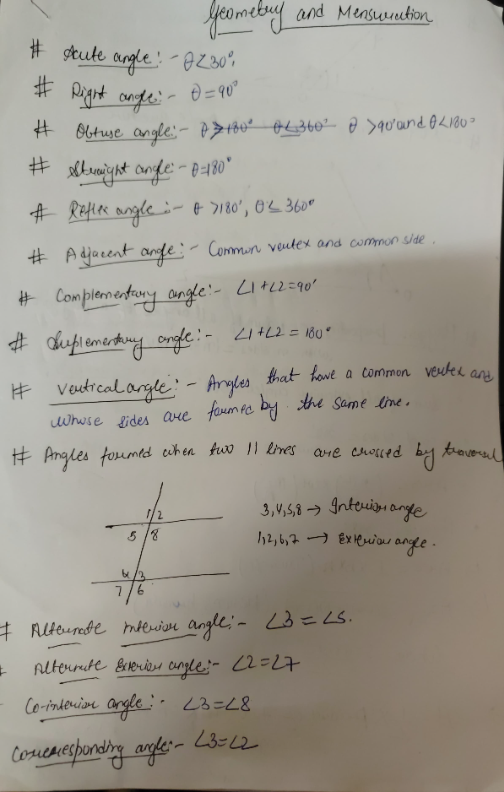 Geometry and Mensuration
# Acute angle:- θ<30°.
# Right angle:- θ=90°
# Obtuse angle:- θ≥180° θ≤360° θ >90°and θ<180°
# Straight angle:- θ=180°
# Reflex angle:- θ >180°, θ≤ 360°
# Adjacent angle:- Common vertex and common side.
# Complementary angle:- ∠1+∠2=90°
# Suplementary angle:- ∠1+∠2 = 180°
# vertical angle:- Angles that have a common vertex and
whose sides are formed by the same line.
# Angles formed when two 11 lines are crossed by
1/2
3,4,5,8 → Interior angle
5/8
1,2,6,7 → Exterior angle.
4/3
7/6
# Alternate interior angle:- ∠3=∠5.
Alternate Exterior angle:- ∠2=∠7
Co-interior angle:- ∠3=∠8
angle:- ∠3=∠2